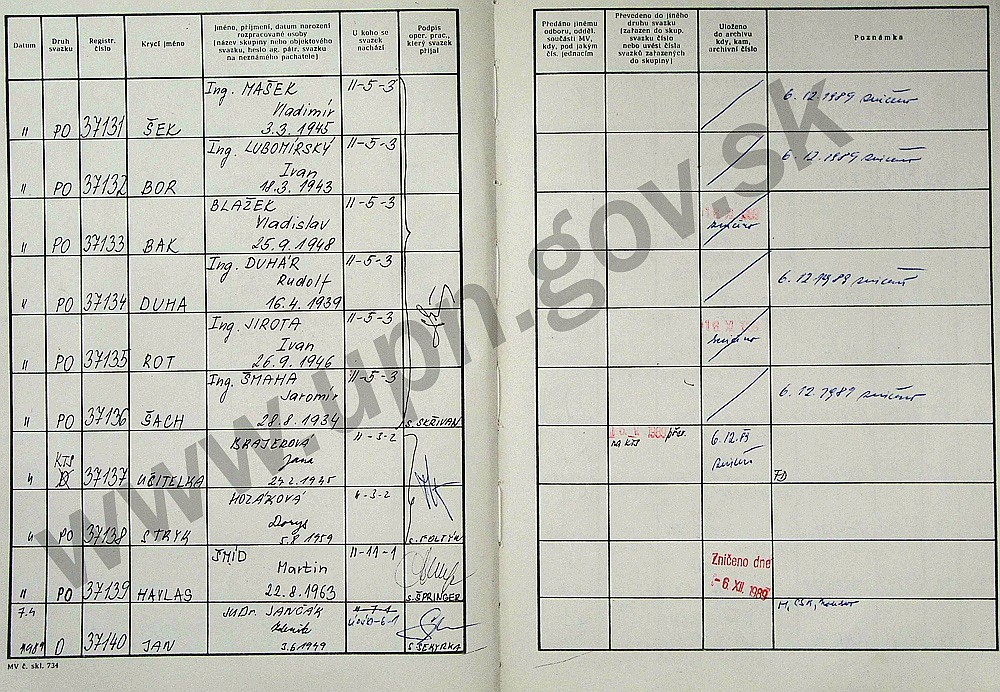 Datum
Druh svazku
Registr. číslo
Krycí jméno
Jméno, příjmení, datum narození
rozpracované osoby
(název skupiny nebo objektového
svazku, heslo ag. pátr. svazku
na neznámého pachatele)
U koho se
svazek
nachází
Podpis
oper. prac.,
který svazek
přijal
Předáno jinému
odboru, odděl.
součásti MV,
kdy, pod jakým
čís. jednacím
Převedeno do jiného
druhu svazku
(zařazen do skup.
svazku číslo
nebo uvést čísla
svazků zařazených
do skupiny)
Uloženo
do archivu
kdy, kam,
archivní číslo
Poznámka
Ing. MAŠEK II-5-3
Vladimír
" PO 37131 ŠEK 3.3. 1945
6.12.1989 zničeno
Ing. LUBOMÍRSKÝ II-5-3
Ivan
" PO 37132 BOR 18.3. 1943
6.12.1989 zničeno
BLAŽEK II-5-3
Vladislav
" PO 37133 BAK 25.9. 1948
zničeno
Ing. DUHÁR II-5-3
Rudolf
" PO 37134 DUHA 16.4. 1939
6.12.1989 zničeno
Ing. JIROTA II-5-3
Ivan
" PO 37135 ROT 26.9. 1946
zničeno
Ing. ŠMAHA II-5-3
Jaromír
" PO 37136 ŠACH 28.8. 1934 S. SEŘIVAN
6.12.1989 zničeno
BRAJEROVÁ II-3-2
KTS Jana
" 37137 UČITELKA
1989 přev.
na KTS
6.12.89
zničeno
HOZÁKOVÁ II-3-2
Dorys
" PO 37138 STRYK 5.8. 1959 S. FOLTÝN
ŠMÍD II-11-1
Martin
" PO 37139 HAVLAS 22.8. 1963 S. ŠPRINGER
Zničeno dne
-6. XII. 1989
7.4. JUDr. JANČÁK II-7-1
Zdeněk
1989 O 37140 JAN 3.6. 1949 S. SEKYRKA
MV č. skl. 734
www.upn.gov.sk